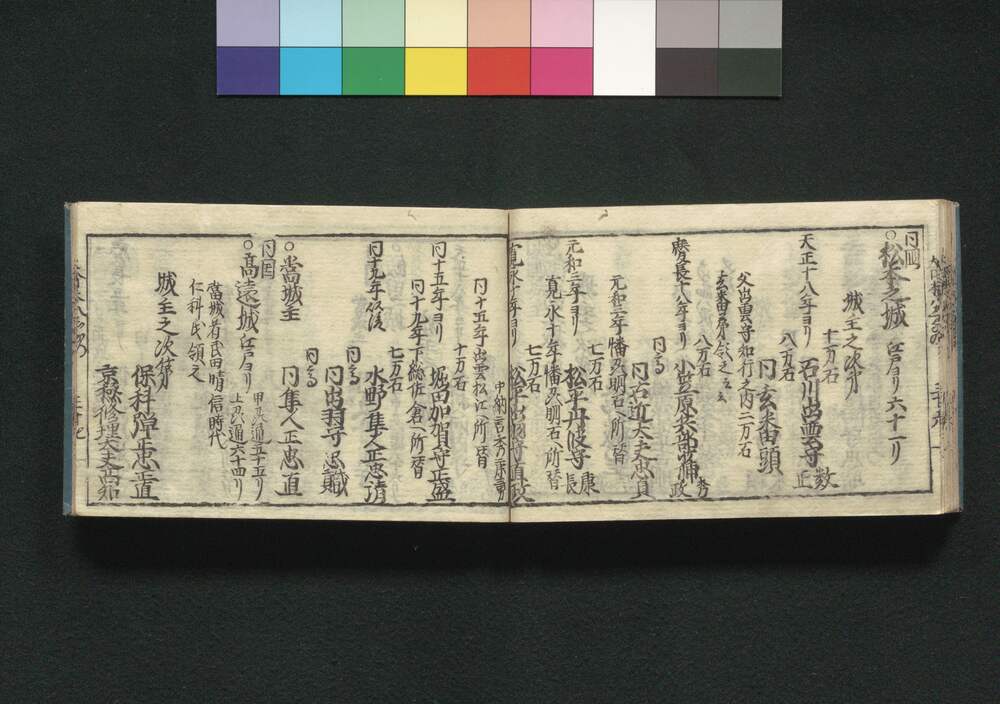 同国
○松本之城 江戸ヨリ六十一リ
城主之次第
十万石
天正十八年ヨリ 石川出雲守 数正
八万石
同玄蕃頭
父出雲守知行之内二万石
八万石
慶長十八年ヨリ 小笠原兵部大輔 秀政
同高
同右近大夫忠真
元和三年播州明石ヘ所替
七万石
元和三年ヨリ 松平丹波守 康長
寛永十年播州明石ヘ所替
七万石
寛永十年ヨリ 松平出羽守直政
中納言秀康
同十五年出雲松江ヘ所替
十万石
同十五年ヨリ 堀田加賀守正盛
同十九年下総佐倉ヘ所替
七万石
同十九年以後 水野隼人正忠清
同高
同出羽守忠職
同高
○當城主 同隼人正忠直
同国
○高遠城 江戸ヨリ 甲州通五十五リ
上州通六十四リ
當城者武田晴信時代
仁科氏領之
城主之次第
保科弾正忠正直
京極修理大夫高知